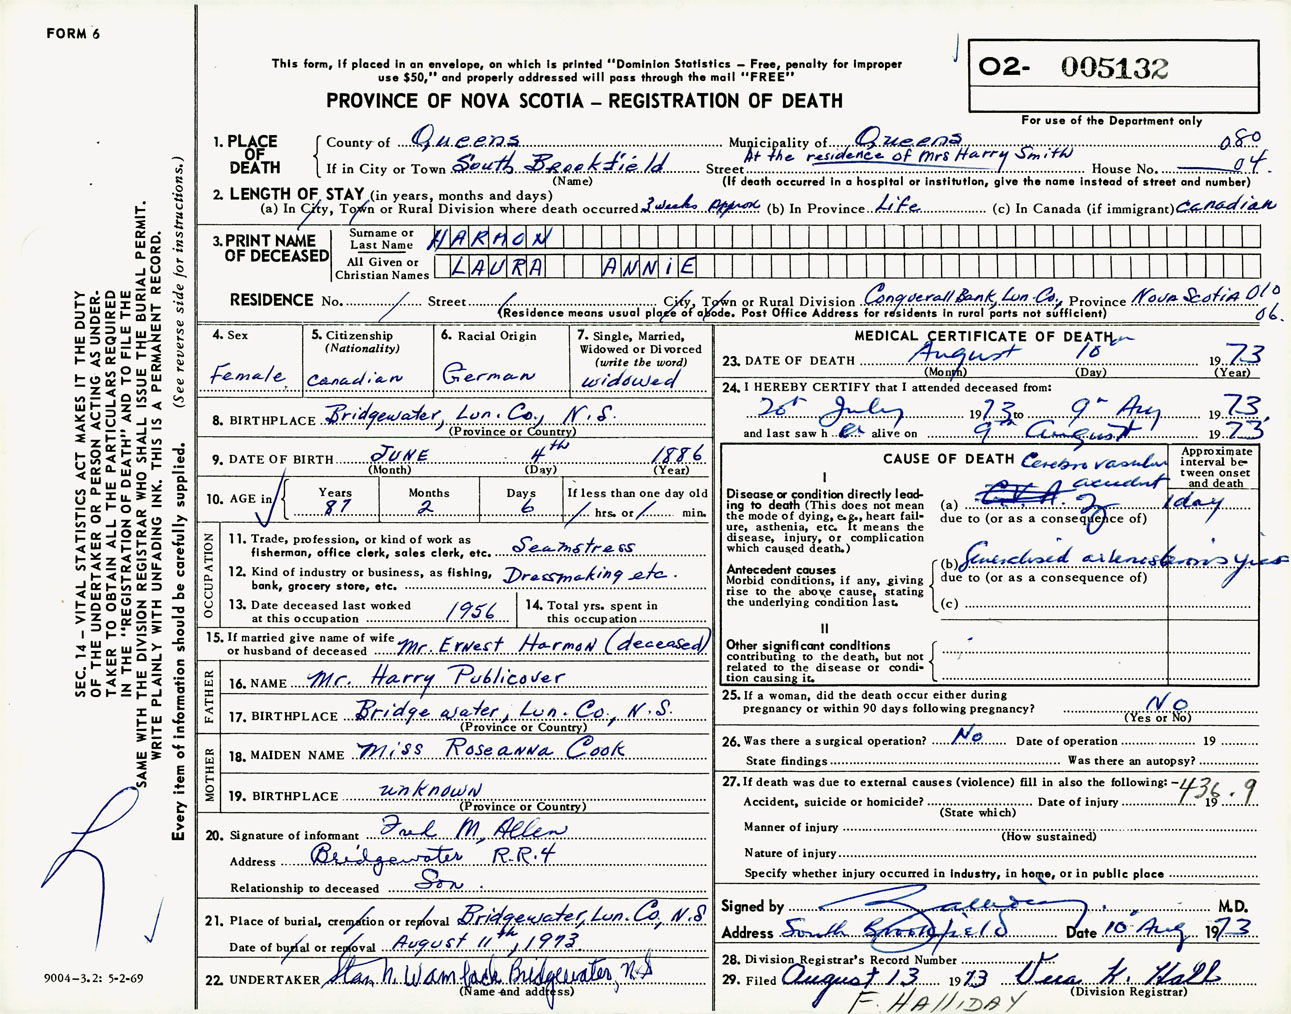 FORM 6
This form, if placed in an envelope, on which is printed "Dominion Statistics – Free, penalty for improper
use $50," and properly addressed will pass through the mail "FREE"
PROVINCE OF NOVA SCOTIA – REGISTRATION OF DEATH
02- 005132
For use of the Department only
SEC. 14 – VITAL STATISTICS ACT MAKES IT THE DUTY
OF THE UNDERTAKER OR PERSON ACTING AS UNDER-
TAKER TO OBTAIN ALL THE PARTICULARS REQUIRED
IN THE "REGISTRATION OF DEATH" AND TO FILE THE
SAME WITH THE DIVISION REGISTRAR WHO SHALL ISSUE THE BURIAL PERMIT.
WRITE PLAINLY WITH UNFADING INK. THIS IS A PERMANENT RECORD.
Every item of information should be carefully supplied. (See reverse side for instructions.)
1. PLACE OF DEATH
County of Queens Municipality of Queens 080
If in City or Town South Brookfield Street At the residence of Mrs Harry Smith House No. 04.
(Name) (If death occurred in a hospital or institution, give the name instead of street and number)
2. LENGTH OF STAY (in years, months and days)
(a) In City, Town or Rural Division where death occurred 3 weeks approx (b) In Province Life (c) In Canada (if immigrant) Canadian
3. PRINT NAME OF DECEASED
Surname or Last Name HARMON
All Given or Christian Names LAURA ANNIE
RESIDENCE No. / Street / City, Town or Rural Division Conquerall Bank, Lun. Co., Province Nova Scotia 010
(Residence means usual place of abode. Post Office Address for residents in rural parts not sufficient) 06.
4. Sex Female
5. Citizenship (Nationality) Canadian
6. Racial Origin German
7. Single, Married, Widowed or Divorced (write the word) widowed
8. BIRTHPLACE Bridgewater, Lun. Co., N.S.
(Province or Country)
9. DATE OF BIRTH JUNE 4th 1886
(Month) (Day) (Year)
10. AGE in Years 87 Months 2 Days 6 If less than one day old / hrs. or / min.
OCCUPATION
11. Trade, profession, or kind of work as
fisherman, office clerk, sales clerk, etc. Seamstress
12. Kind of industry or business, as fishing,
bank, grocery store, etc. Dressmaking etc.
13. Date deceased last worked
at this occupation 1956
14. Total yrs. spent in
this occupation
15. If married give name of wife
or husband of deceased Mr. Ernest Harmon (deceased)
FATHER
16. NAME Mr. Harry Publicover
17. BIRTHPLACE Bridgewater, Lun. Co., N.S.
(Province or Country)
MOTHER
18. MAIDEN NAME Miss Roseanna Cook
19. BIRTHPLACE unknown
(Province or Country)
20. Signature of informant Fred M. Allen
Address Bridgewater R.R.4
Relationship to deceased Son.
21. Place of burial, cremation or removal Bridgewater, Lun. Co, N.S
Date of burial or removal August 11th, 1973
22. UNDERTAKER Bridgewater, N.S
(Name and address)
9004–3.2: 5-2-69
MEDICAL CERTIFICATE OF DEATH
23. DATE OF DEATH August 10th 1973
(Month) (Day) (Year)
24. I HEREBY CERTIFY that I attended deceased from:
20th July 1973 to 9th Aug 1973,
and last saw her alive on 9th August 1973
CAUSE OF DEATH
Approximate interval between onset and death
I
Disease or condition directly lead-
ing to death (This does not mean
the mode of dying, e.g., heart fail-
ure, asthenia, etc. It means the
disease, injury, or complication
which caused death.)
Cerebrovascular
accident
(a) C.V.A. 1 day
due to (or as a consequence of)
Antecedent causes
Morbid conditions, if any, giving
rise to the above cause, stating
the underlying condition last.
(b) Generalised arteriosclerosis yrs
due to (or as a consequence of)
(c)
II
Other significant conditions
contributing to the death, but not
related to the disease or condi-
tion causing it.
25. If a woman, did the death occur either during
pregnancy or within 90 days following pregnancy? No
(Yes or No)
26. Was there a surgical operation? No Date of operation 19
State findings Was there an autopsy?
27. If death was due to external causes (violence) fill in also the following: –436.9
Accident, suicide or homicide? Date of injury 19
(State which)
Manner of injury
(How sustained)
Nature of injury
Specify whether injury occurred in industry, in home, or in public place
Signed by M.D.
Address South Brookfield Date 10th Aug 1973
28. Division Registrar's Record Number
29. Filed August 13 1973 Vera K. Hall
(Division Registrar)
F. HALLIDAY